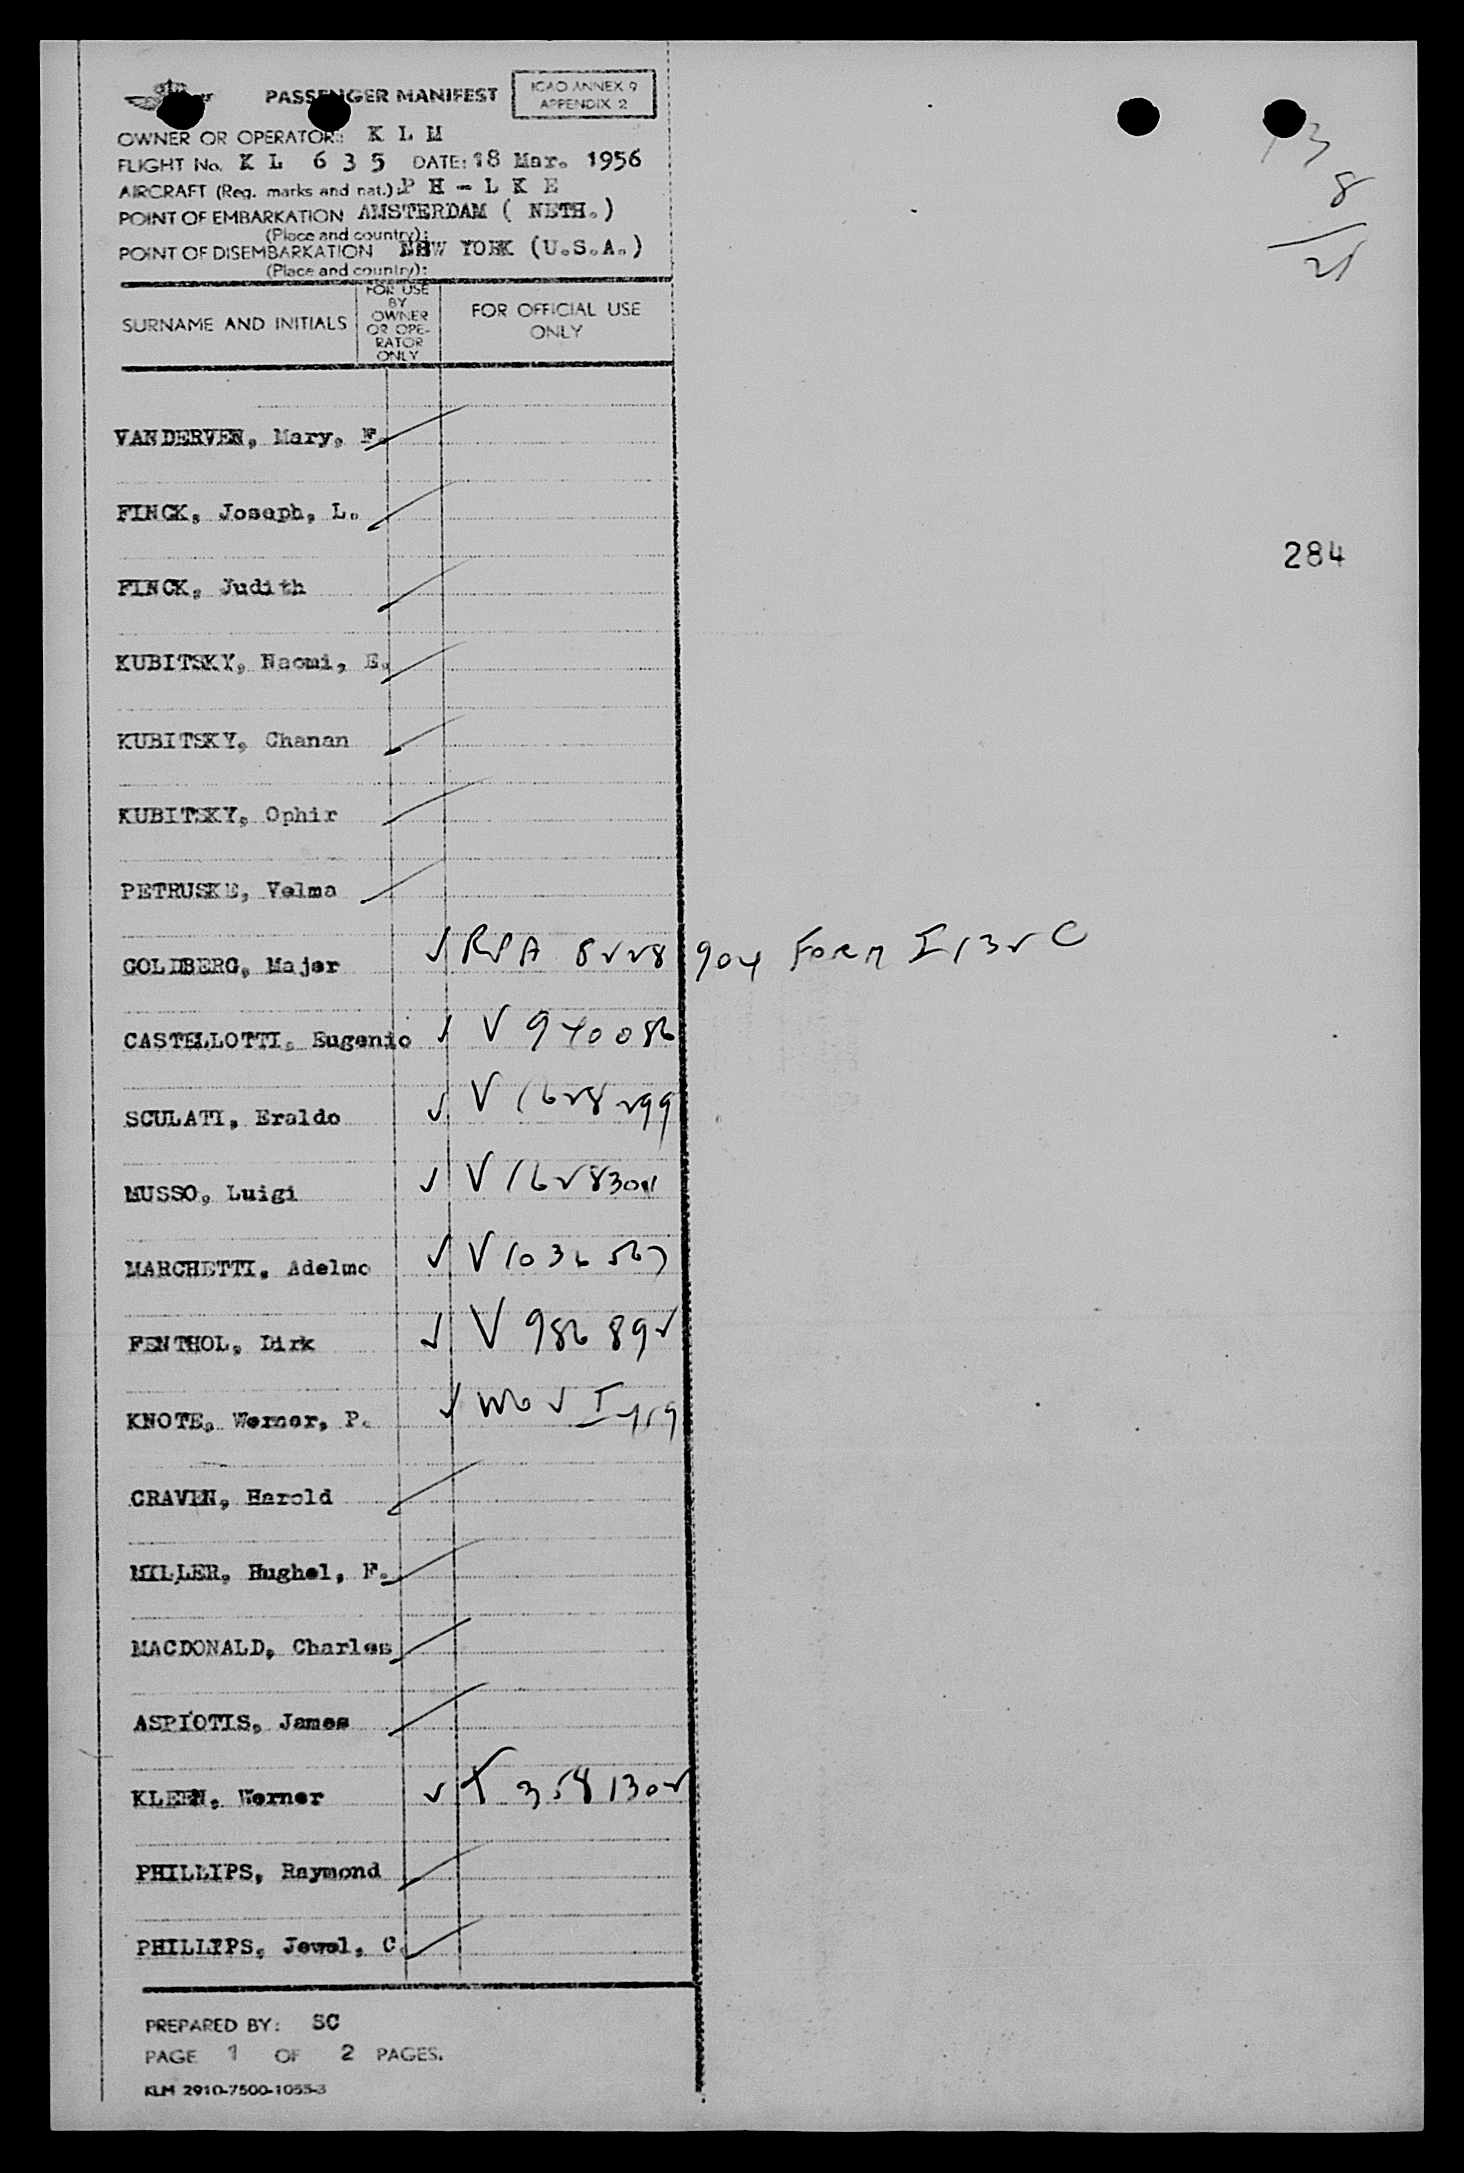 PASSENGER MANIFEST
ICAO ANNEX 9
APPENDIX 2
OWNER OR OPERATOR: K L M
FLIGHT No. K L 6 3 5 DATE: 18 Mar. 1956
AIRCRAFT (Reg. marks and nat.): P H - L K E
POINT OF EMBARKATION AMSTERDAM ( NETH.)
(Place and country):
POINT OF DISEMBARKATION NEW YORK (U.S.A.)
(Place and country):
13
8
21
SURNAME AND INITIALS
FOR USE
BY
OWNER
OR OPE-
RATOR
ONLY
FOR OFFICIAL USE
ONLY
VANDERVEN, Mary, F.
FINCK, Joseph, L.
284
FINCK, Judith
KUBITSKY, Naomi, E.
KUBITSKY, Chanan
KUBITSKY, Ophir
PETRUSKE, Velma
GOLDBERG, Majer ✓ 8228904 Form I 132 C
CASTELLOTTI, Eugenio ✓ V 940086
SCULATI, Eraldo ✓ V 1628299
MUSSO, Luigi ✓ V
MARCHETTI, Adelmo ✓ V 1036567
FENTHOL, Dirk ✓ V 986892
KNOTE, Werner, P. ✓
CRAVEN, Harold
MILLER, Hughel, F.
MACDONALD, Charles
ASPIOTIS, James
KLEEN, Werner ✓ 3581302
PHILLIPS, Raymond
PHILLIPS, Jewel, C.
PREPARED BY: SC
PAGE 1 OF 2 PAGES.
KLM 2910-7500-1055-3